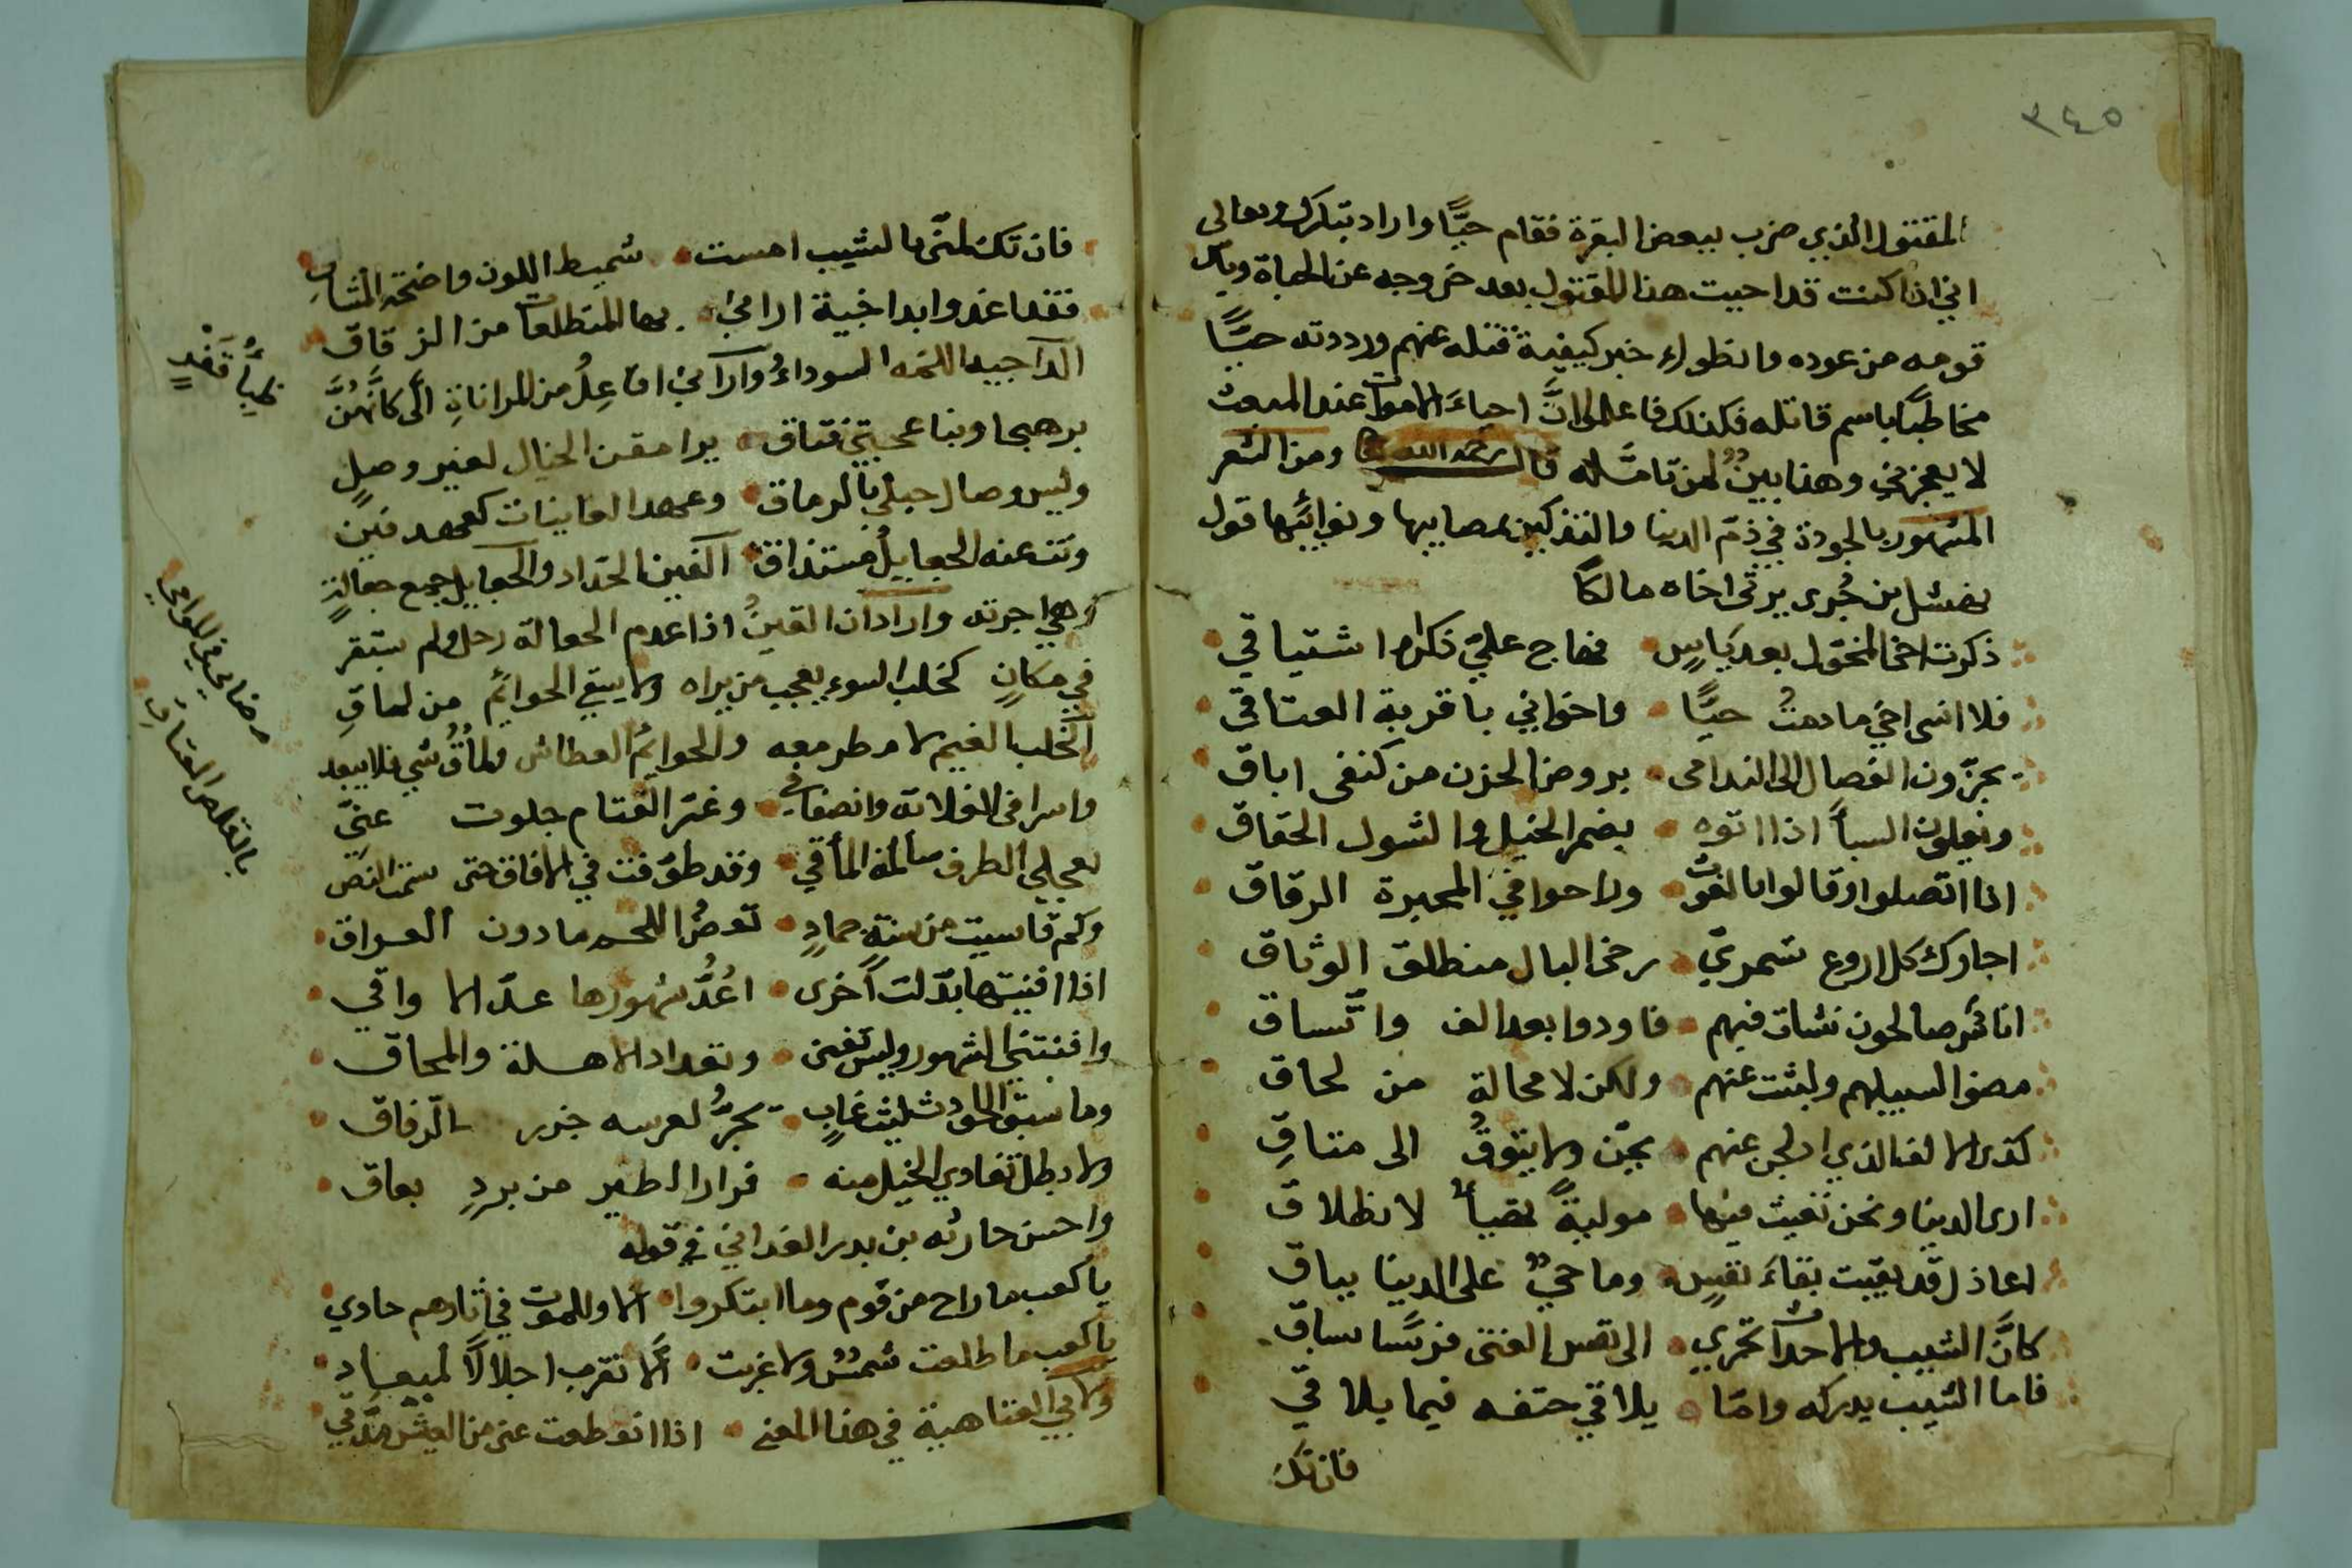 ٣٤٥
المقتول الذي ضرب ببعض البقرة فقام حيًّا واراد تبارك وتعالى
اني اذا كنت قد احييت هذا المقتول بعد خروجه عن الحياة ويأس
قومه من عوده وانطواء خبر كيفية قتله عنهم ورددته حيًّا
مخاطبًا باسم قاتله فكذلك فاعلموا انَّ احياءَ الاموات عند المبعث
لا يعجزني وهذا بينٌ لمن تامّله قال رحمه الله ومن الشعر
المشهور بالجودة في ذمّ الدنيا والتذكير بمصايبها ونوائبها قول
نهشل بن حُرى يرثى اخاه مالكًا
ذكرت اخى المخوّل بعد يأسٍ فهاج علىّ ذكراه اشتياقي
فلا انسى اخي ما دمتُ حيًّا واخواني باقرية العناقى
يجرّون الفصال الى الندامى بروض الحزن من كنفى اباق
ويغلون السبأ اذا اتوه بضمر الخيل والشول الحقاق
اذا اتصلوا وقالوا يا لغوث وراحوا في المحبرة الرقاق
اجارك كل اروع شمريّ رخى البال منطلق الوثاق
اناس صالحون نشات فيهم فاودوا بعد الف واتّساق
مضوا لسبيلهم ولبثت عنهم ولكن لا محالة من لحاق
كذى الالف الذي ادلجن عنهم يحنّ ولا يتوقُ الى متاقِ
ارى الدنيا ونحن نعيث فيها موليةً تهيأ لانطلاق
اعاذل قد بقيت بقاءَ نفسٍ وما حيٌّ على الدينا بباق
كانَّ الشيب والاحداث تجري الى نفس الفتى فرسًا سباق
فاما الشيب يدركه وامّا يلاقي حتفه فيما يلاقي
فان تك
فان تك لمّتى بالشيب امست شميط اللون واضحة المشاب
فقد اغدوا بداجية اراني بها المتطلعات من الرقاق
الداجيه اللمّه السوداءُ وارآني افاعِلُ من المراناةِ اىّ كانَّهُنَّ
برهبجا وبنا عجبتني فتاق يرامقن الخيال لغير وصلٍ
وليس وصال حبلى بالرماق وعهد الغانيات كعهد قينٍ
ونت عنه الجعايلُ مستذاق القين الحدّاد والجعايل جمع جعالةٍ
وهي اجرته واراد ان القينَ اذا عدم الجعالة رحل ولم يستقر
في مكانٍ كخلب السوء يعجب من يراه ولا يشفى الحوائم من لماقِ
الخلب الغيم لا مطر معه والحوائمُ العطاش
وغبّر القتام جلوت عنّي
بعجلى الطرف سالمة المأقي وقد طوّفت في الافاق حتى
وكم قاسيت من سنةٍ جمادٍ تعضُّ اللحم ما دون العراق
اذا افنيتها بدّلت اخرى اعُدُّ شهورها عدّ الاواقي
وافنتني الشهور وليس تفنى وتعداد الاهلة والمحاق
وما سبق الحوادث ليث غابٍ يجرُّ لعرسه جزر الرّفاق
ولا بطل تفادي الخيل منه فرار الطير من بردٍ بعاق
واحسن حارثه بن بدر الغداني في قوله
يا كعب ما راح من قوم وما ابتكروا الا وللموت في اثارهم حادي
يا كعب ما طلعت شمسٌ ولا غربت الّا تقرب اجالًا لميعاد
ولابي العتاهية في هذا المعنى اذا انقطعت عنى من العيش مدّتي